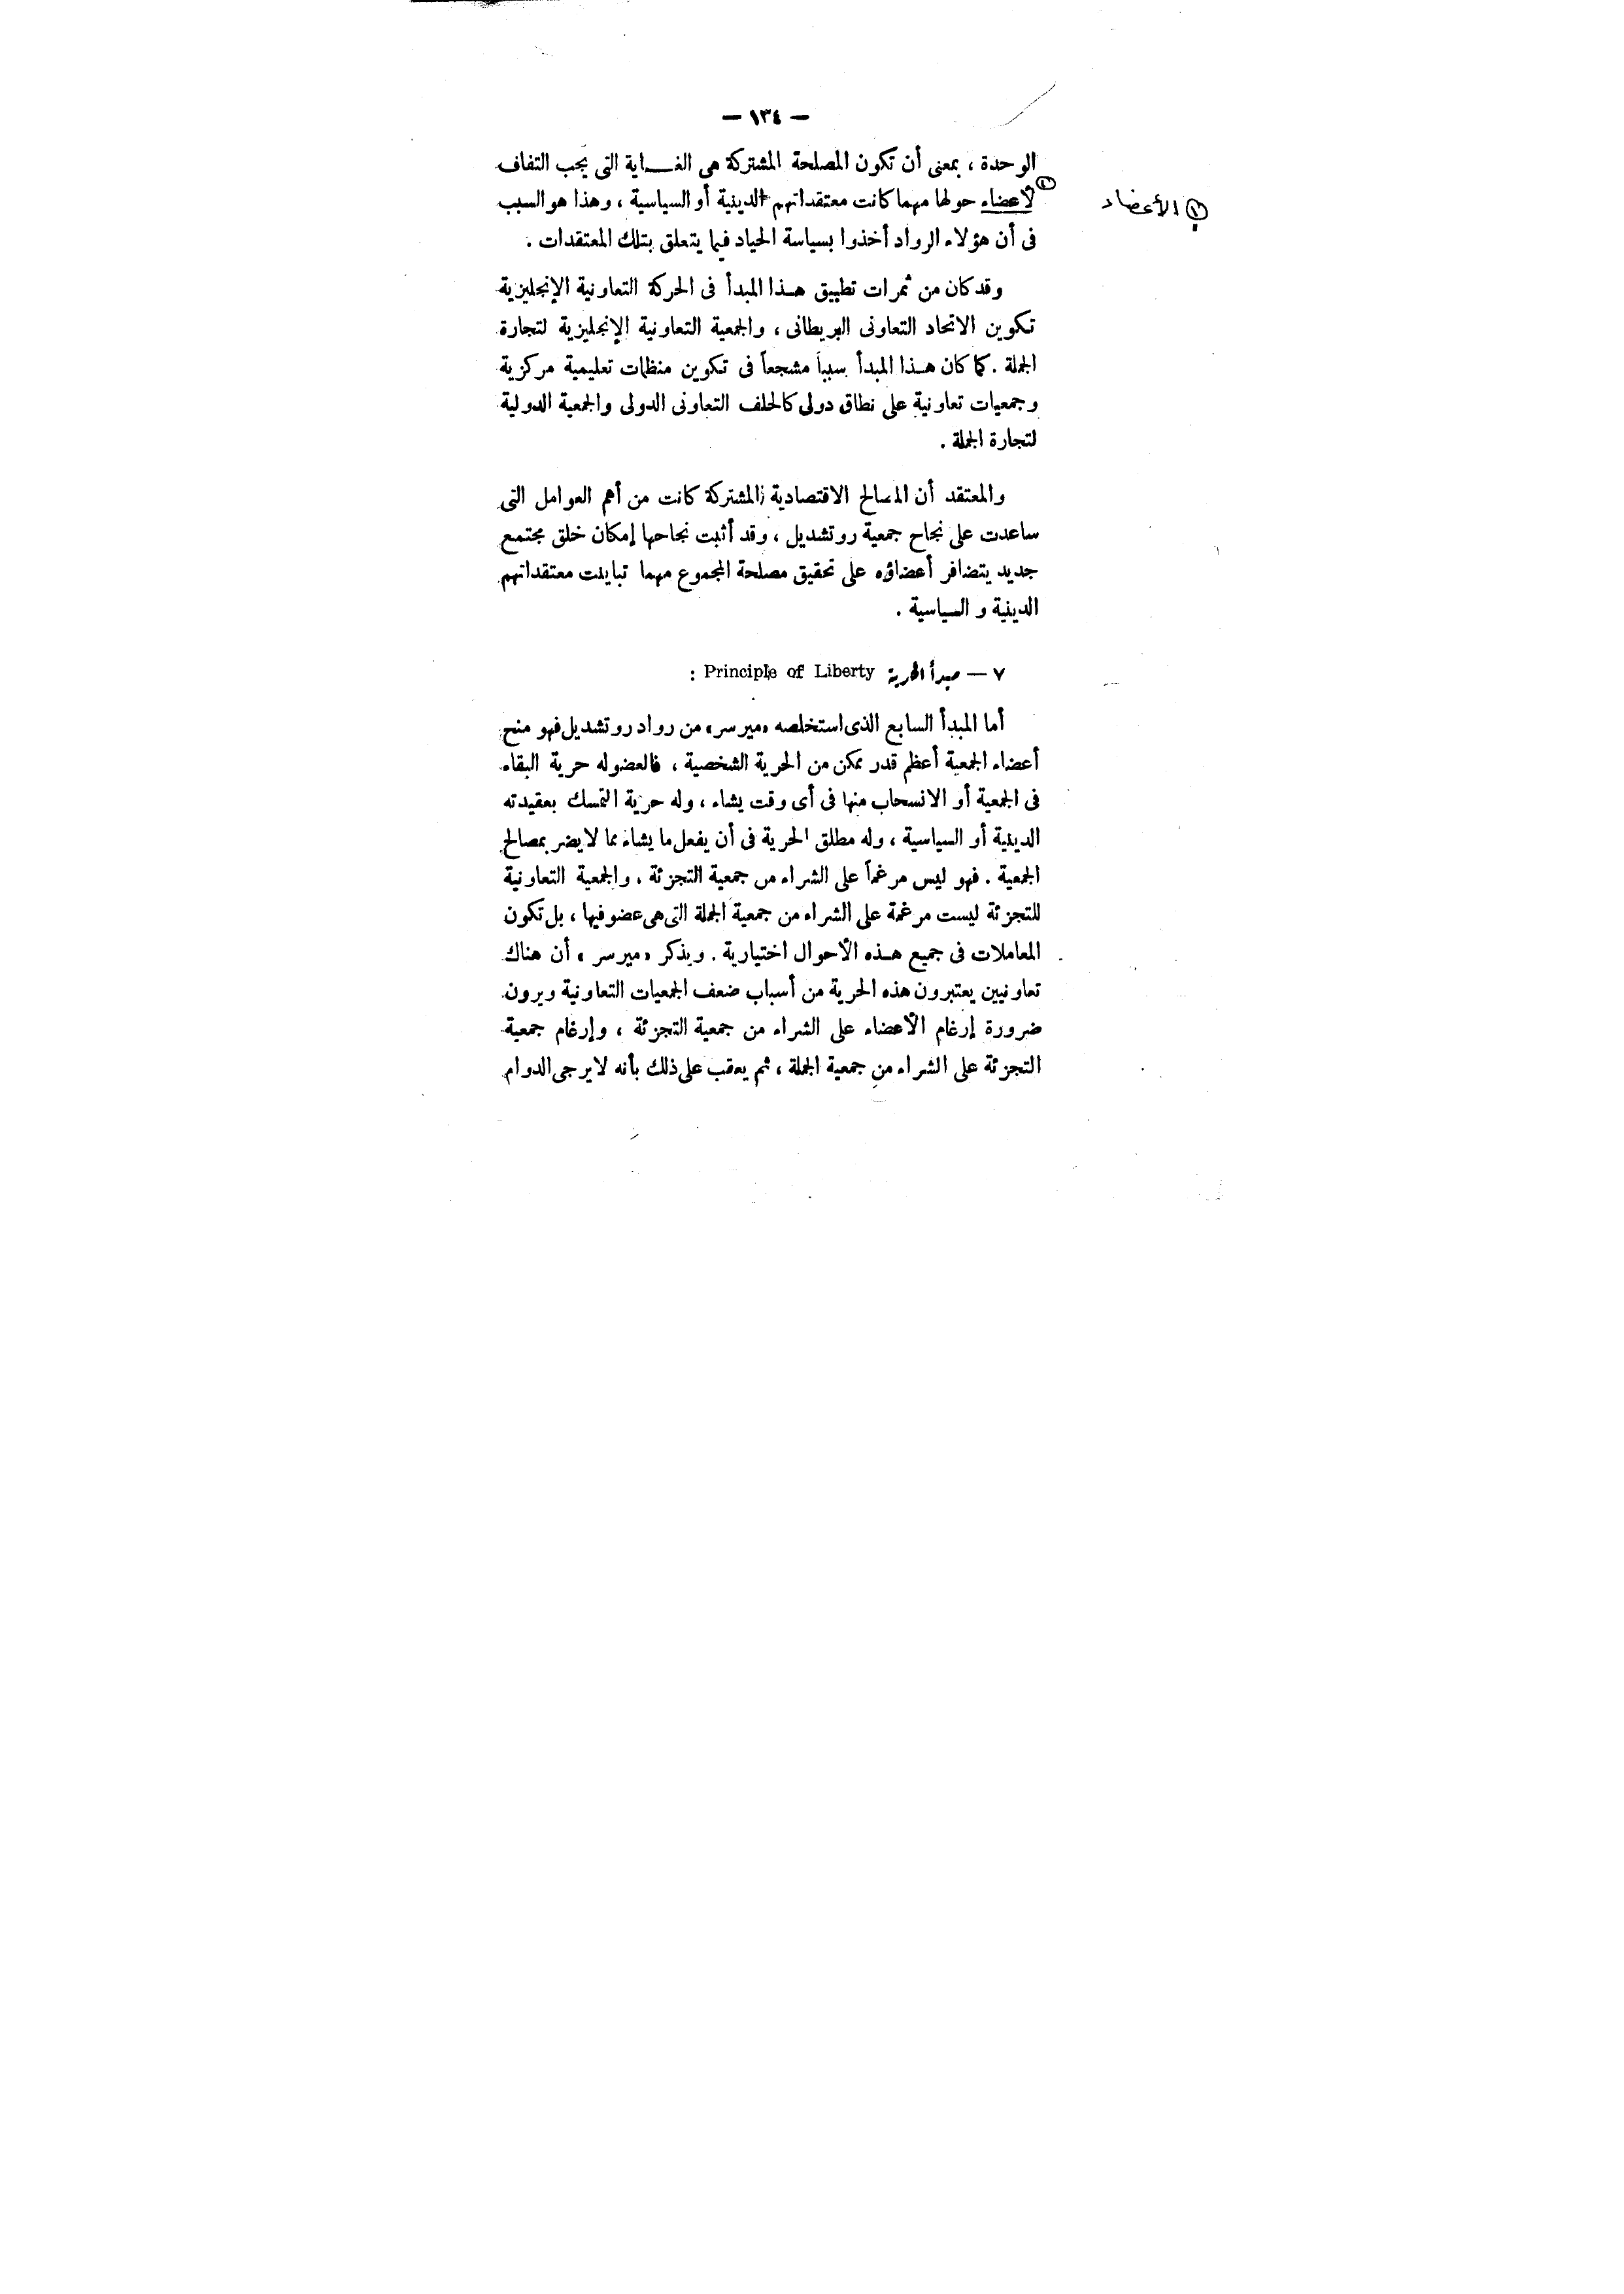 — ١٣٤ —
الوحدة ، بمعنى أن تكون المصلحة المشتركة هى الغـــاية التى يجب التفاف
① لأعضاء حولها مهما كانت معتقداتهم الدينية أو السياسية ، وهذا هو السبب
① الأعضاء
فى أن هؤلاء الرواد أخذوا بسياسة الحياد فيما يتعلق بتلك المعتقدات .
وقد كان من ثمرات تطبيق هـذا المبدأ فى الحركة التعاونية الإنجليزية
تكوين الاتحاد التعاونى البريطانى ، والجمعية التعاونية الإنجليزية لتجارة
الجملة . كما كان هـذا المبدأ سبباً مشجعاً فى تكوين منظمات تعليمية مركزية
وجمعيات تعاونية على نطاق دولى كالحلف التعاونى الدولى والجمعية الدولية
لتجارة الجملة .
والمعتقد أن المصالح الاقتصادية المشتركة كانت من أهم العوامل التى
ساعدت على نجاح جمعية روتشديل ، وقد أثبت نجاحها إمكان خلق مجتمع
جديد يتضافر أعضاؤه على تحقيق مصلحة المجموع مهما تباينت معتقداتهم
الدينية و السياسية .
٧ — مبدأ الحرية Principle of Liberty :
أما المبدأ السابع الذى استخلصه «ميرسر» من رواد روتشديل فهو منح
أعضاء الجمعية أعظم قدر ممكن من الحرية الشخصية ، فالعضو له حرية البقاء
فى الجمعية أو الانسحاب منها فى أى وقت يشاء ، وله حرية التمسك بعقيدته
الدينية أو السياسية ، وله مطلق الحرية فى أن يفعل ما يشاء مما لا يضر بمصالح
الجمعية . فهو ليس مرغماً على الشراء من جمعية التجزئة ، والجمعية التعاونية
للتجزئة ليست مرغمة على الشراء من جمعية الجملة التى هى عضو فيها ، بل تكون
المعاملات فى جميع هـذه الأحوال اختيارية . ويذكر «ميرسر» أن هناك
تعاونيين يعتبرون هذه الحرية من أسباب ضعف الجمعيات التعاونية ويرون
ضرورة إرغام الأعضاء على الشراء من جمعية التجزئة ، وإرغام جمعية
التجزئة على الشراء من جمعية الجملة ، ثم يعقب على ذلك بأنه لا يرجى الدوام